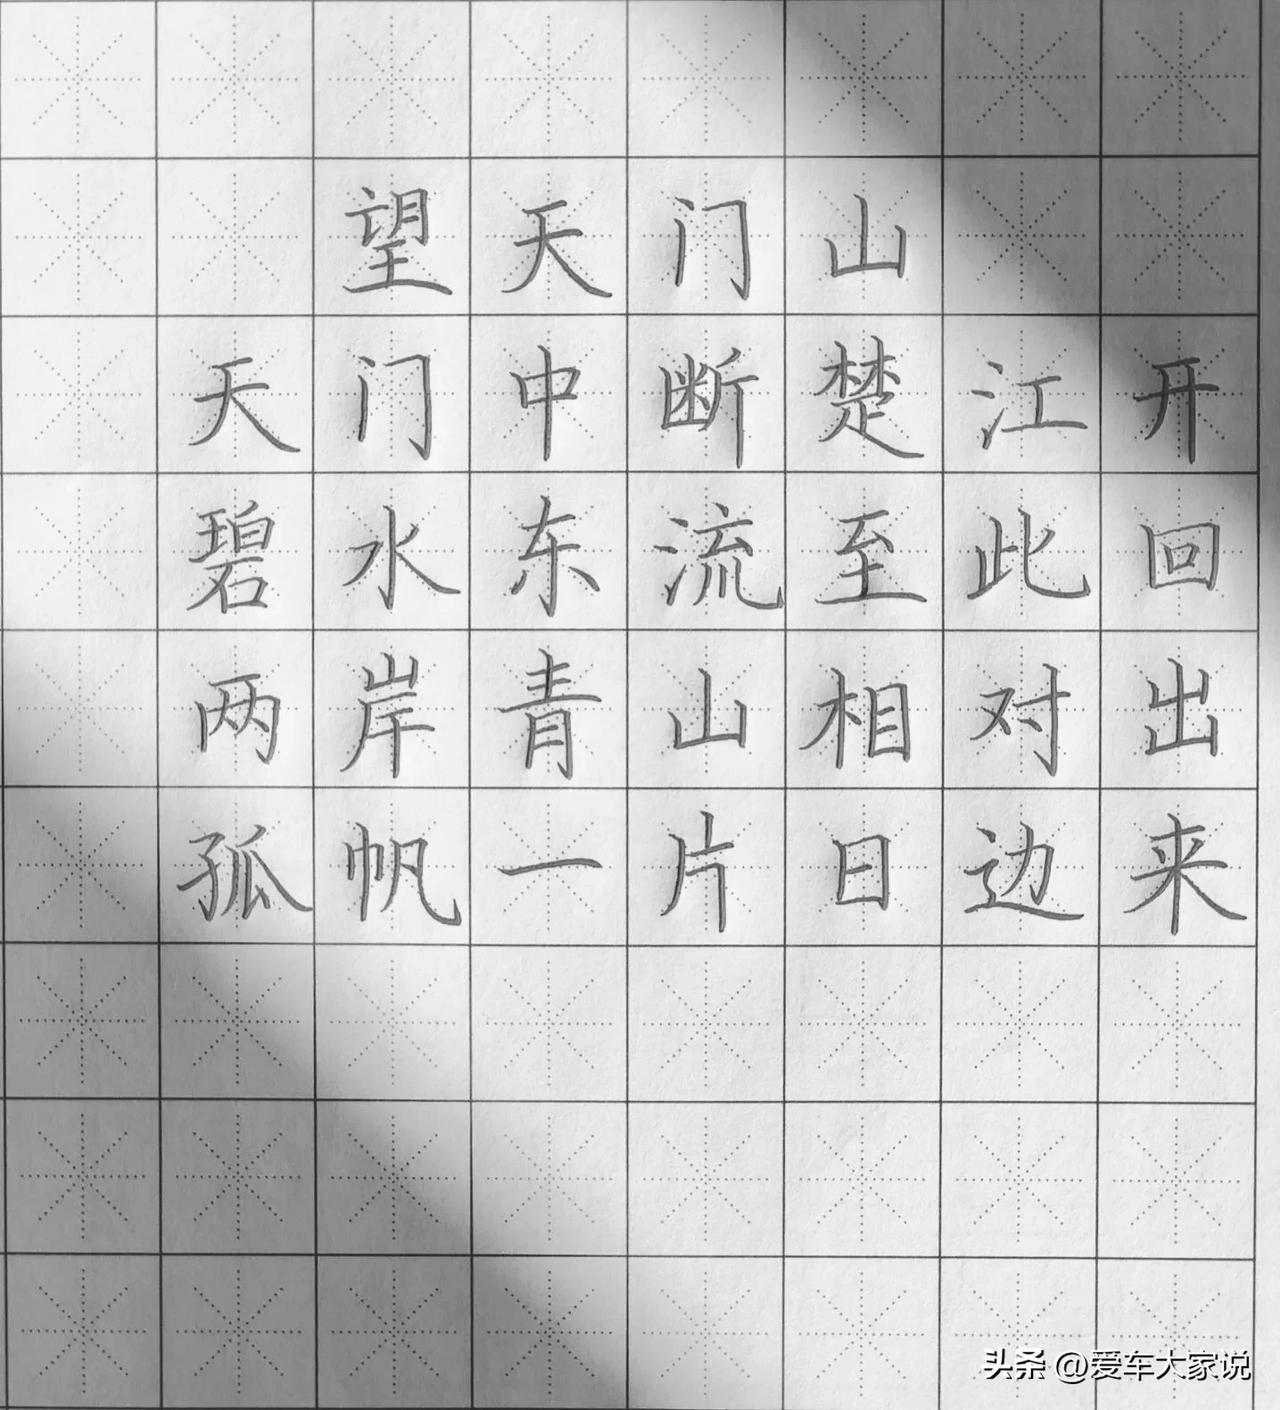 望天门山
天门中断楚江开
碧水东流至此回
两岸青山相对出
孤帆一片日边来
头条 @爱车大家说